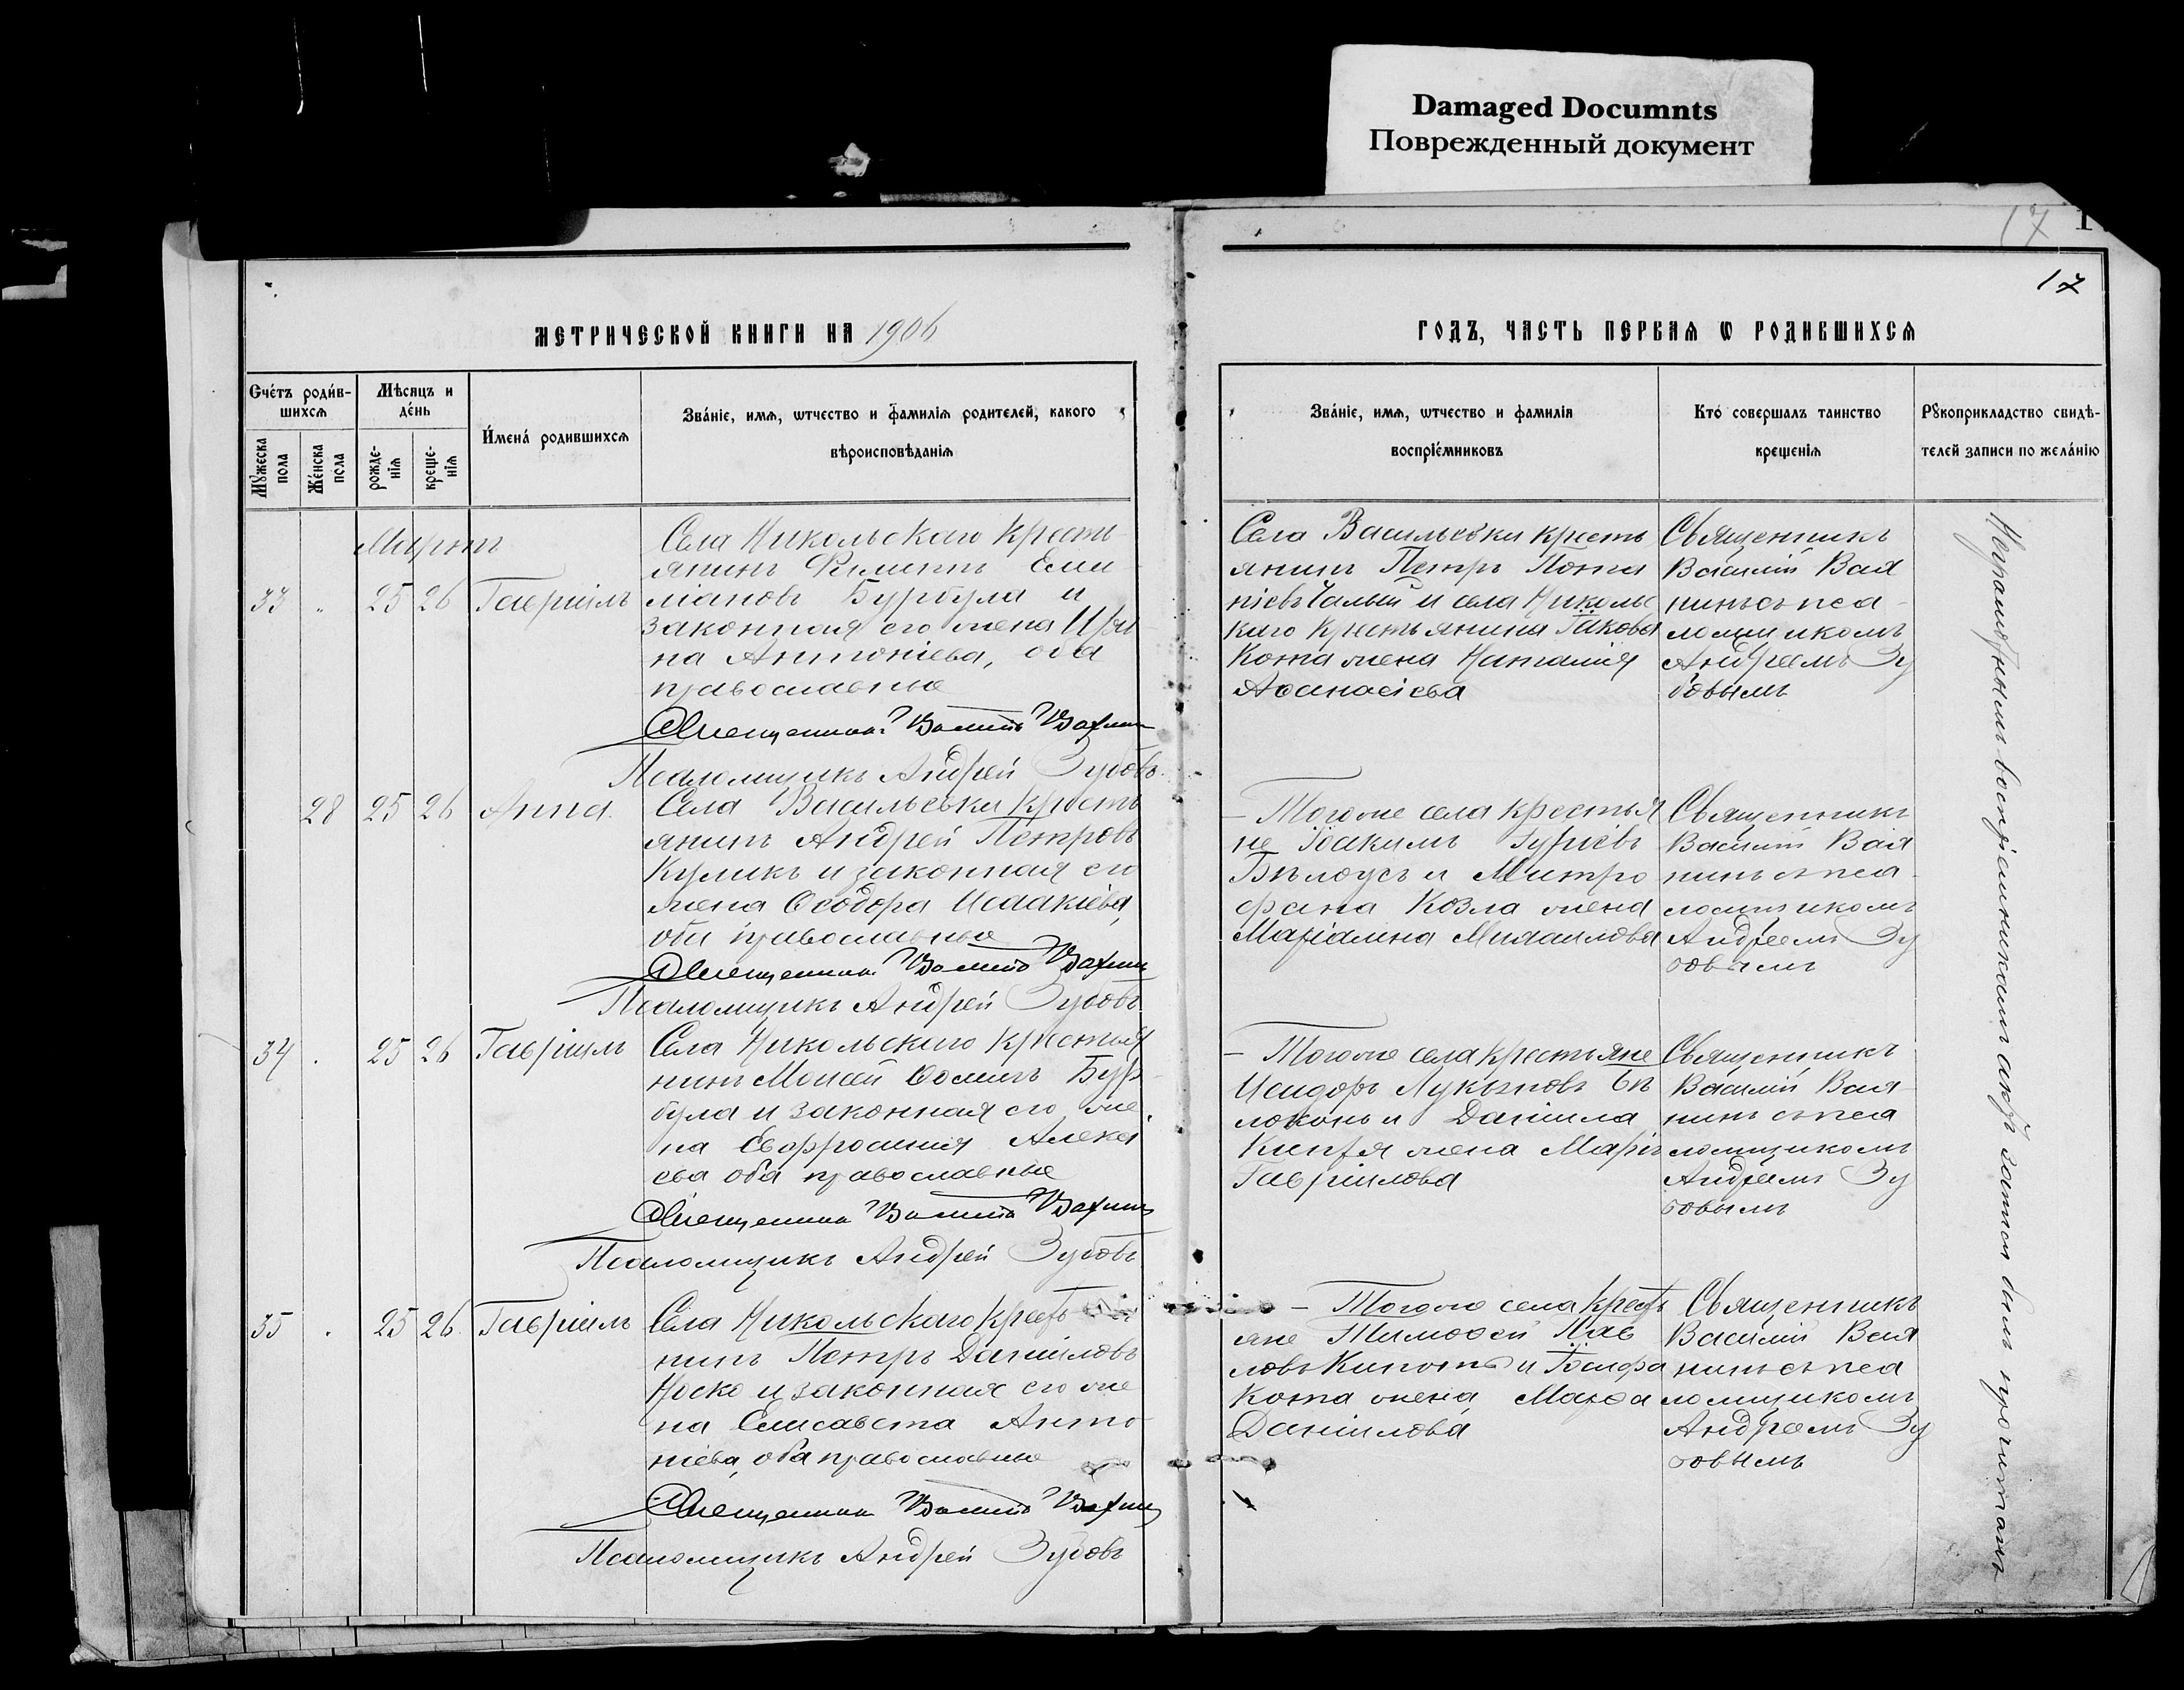 Damaged Documnts
Поврежденный документ
17
17
МЕТРИЧЕСКОЙ КНИГИ НА 1906
ГОДЪ, ЧАСТЬ ПЕРВАѦ Ѡ РОДИВШИХСѦ
Счéтъ роди́в-
шихсѧ
Мꙋжеска
пола
Жéнска
пола
Мѣсяцъ и
дéнь
рожде-
нїѧ
креще-
нїѧ
И́менá родившихсѧ
Звáнїе, имѧ, ѡтчество и фамилїѧ родителей, какого
вѣроисповѣданїѧ
Звáнїе, имѧ, ѡтчество и фамилїѧ
воспрїе́мниковъ
Ктó совершалъ таинство
крещенїѧ
Рꙋкоприкладство свидѣ-
телей записи по желáнїю
Мартъ
33 " 25 26 Гавріилъ
Села Никольскаго Кресть
янинъ Филиппъ
Бурбула и
законная его жена
на Антоніева, оба
православные
Священникъ Василій
Псаломщикъ Андрей Зубовъ.
Села Васильевки кресть
янинъ Петръ
и села Николь
каго крестьянина Іакова
Кота жена Наталія
Аѳанасіева
Священникъ
Василій
съ пса
ломщикомъ
Андреемъ Зу
бовымъ
28 25 26 Анна.
Села Васильевки кресть
янинъ Андрей Петровъ
Куликъ и законная его
жена Ѳеодора Исаакіева,
оба православные
Священникъ Василій
Псаломщикъ Андрей Зубовъ.
— Тогоже села крестья
не Іоакимъ Гуріевъ
Бѣлоусъ и Митро
фана Козла жена
Маріамна Михаилова
Священникъ
Василій
съ пса
ломщикомъ
Андреемъ Зу
бовымъ
34 . 25 26 Гавріилъ
Села Никольскаго крестья
нинъ Моисей Ѳоминъ Бур
була и законная его же
на Евфросинія Алексі
ева оба православные
Священникъ Василій
Псаломщикъ Андрей Зубовъ
— Тогоже села крестьяне
Исидоръ Лукьяновъ Бѣ
локонь и Даніила
жена Марія
Гавріилова
Священникъ
Василій
съ пса
ломщикомъ
Андреемъ Зу
бовымъ
35 . 25 26 Гавріилъ
Села Никольскаго кресть
нинъ Петръ Даніиловъ
Носко и законная его же
на Елисавета Анто
ніева, оба православные
Священникъ Василій
Псаломщикъ Андрей Зубовъ
— Тогоже села кресть
яне Тимоѳей Пав
ловъ и Іосифа
Кота жена Марѳа
Даніилова
Священникъ
Василій
съ пса
ломщикомъ
Андреемъ Зу
бовымъ
Неграмотнымъ воспріемникамъ запись была прочитана